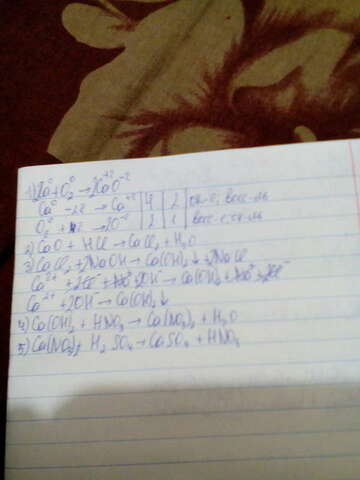 1) 2Ca⁰ + O₂⁰ → 2Ca⁺²O⁻²
Ca⁰ - 2e → Ca⁺² | 4 | 2 | ок-е, восс-ль
O₂⁰ + 4e → 2O⁻² | 2 | 1 | восс-е, ок-ль
2) CaO + HCl → CaCl₂ + H₂O
3) CaCl₂ + 2NaOH → Ca(OH)₂↓ + 2NaCl
Ca²⁺ + 2Cl⁻ + 2OH⁻ → Ca(OH)₂ + 2Cl⁻
Ca²⁺ + 2OH⁻ → Ca(OH)₂↓
4) Ca(OH)₂ + HNO₃ → Ca(NO₃)₂ + H₂O
5) Ca(NO₃)₂ + H₂SO₄ → CaSO₄ + HNO₃